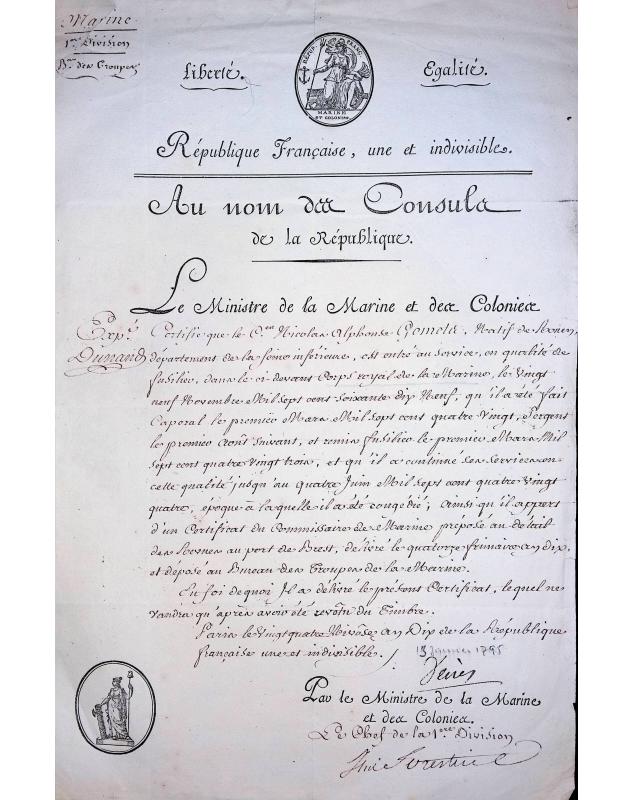 Marine
1re Division
Bau des Troupes
Liberté.
RÉPUB. FRANC.
MARINE
ET COLONIES.
Egalité.
République Française, une et indivisible.
Au nom des Consuls
de la République.
Le Ministre de la Marine et des Colonies
Expé.
Dunand
Certifie que le Cen Nicolas Alphonse Natif de
département de la Seine inférieure, est entré au service, en qualité de
fusilier, dans le ci-devant Corps royal de la Marine, le vingt
neuf Novembre Mil sept cent soixante dix Neuf, qu'il a été fait
Caporal le premier Mars Mil sept cent quatre vingt, Sergent
le premier Août suivant, et remis fusilier le premier Mars Mil
sept cent quatre vingt trois, et qu'il a continué ses services en
cette qualité jusqu'au quatre Juin Mil sept cent quatre vingt
quatre, époque à laquelle il a été congédié; ainsi qu'il appert
d'un Certificat du Commissaire de Marine préposé au détail
des au port de Brest, délivré le quatorze frimaire an dix,
et déposé au Bureau des Troupes de la Marine.
En foi de quoi Il a délivré le présent Certificat, lequel ne
vaudra qu'après avoir été revêtu du Timbre.
Paris le vingt quatre Nivôse an Dix de la République
française une et indivisible. /.
13 janvier 1795
Par le Ministre de la Marine
et des Colonies.
Le Chef de la 1ere Division